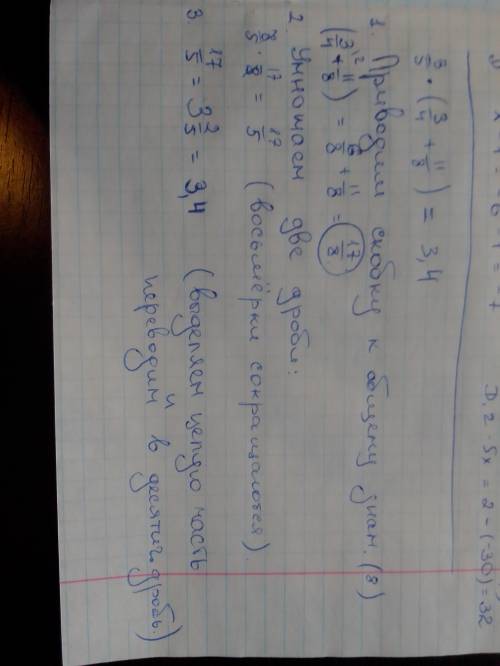 D) x + ... - 6 - 1 = -7
D,2 · 5x = 2 - (-30) = 32
8/5 · (3/4 + 11/8) = 3,4
1. Приводим скобку к общему знам. (8)
(3/4\2 + 11/8) = 6/8 + 11/8 = 17/8
2. Умножаем две дроби:
8/5 · 17/8 = 17/5 (восьмёрки сокращаются).
3. 17/5 = 3 2/5 = 3,4 (выделяем целую часть
и
переводим в десятич. дробь.)